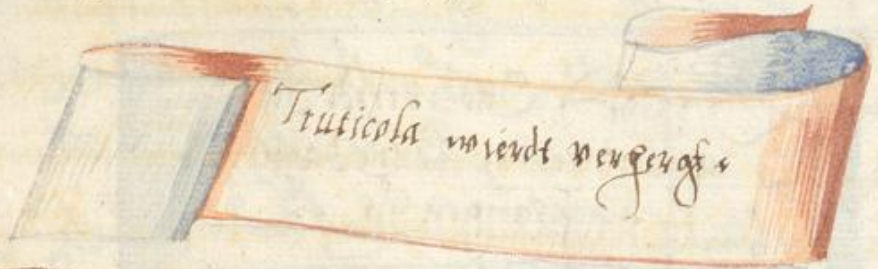 Truticola wierdt verhergt.